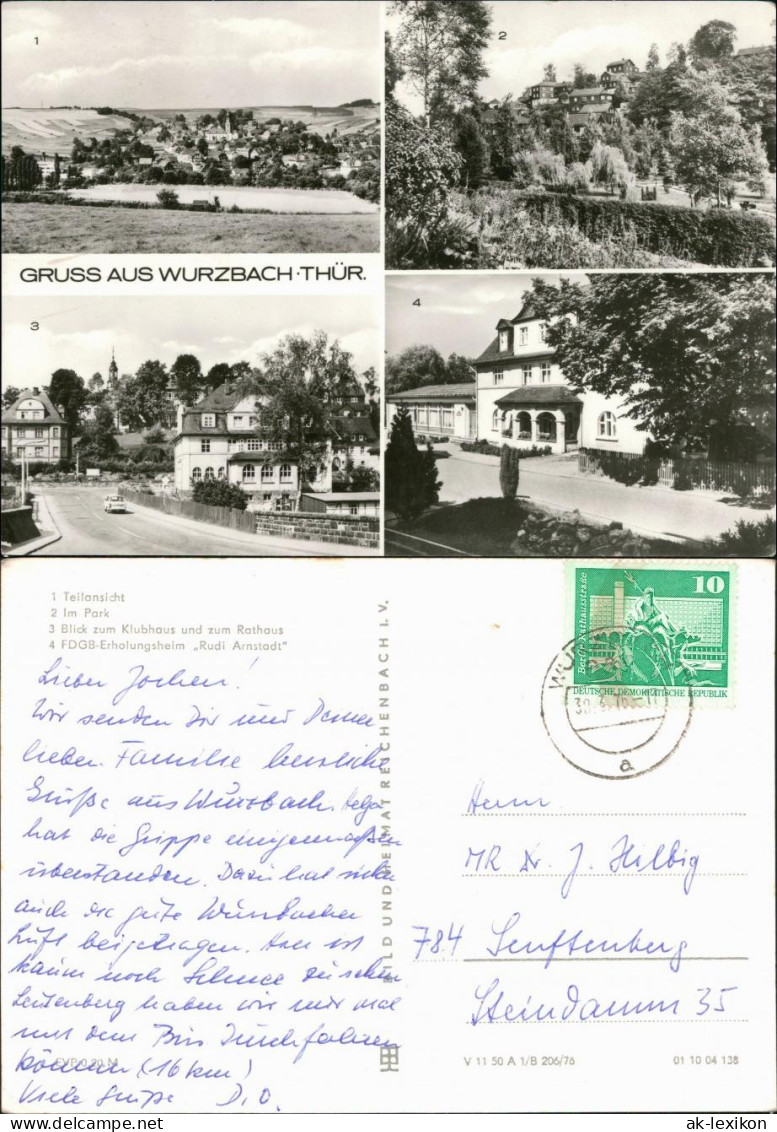 1
2
GRUSS AUS WURZBACH · THÜR.
3
4
1 Teilansicht
2 Im Park
3 Blick zum Klubhaus und zum Rathaus
4 FDGB-Erholungsheim „Rudi Arnstadt"
Lieber Jochen!
Wir senden Dir und Deiner
lieben Familie herzliche
Grüße aus Wurzbach. Helga
hat die Grippe einigermaßen
überstanden. Dazu hat sicher
auch die gute Wurzbacher
Luft beigetragen. Hier ist
kaum noch Schnee zu sehen
Leutenberg haben wir nur mal
mit dem Bus durchfahren
können (16 km)
Viele Grüße D. O.
EVP 0,20 M
BILD UND HEIMAT REICHENBACH I. V.
Berlin, Rathausstraße
10
DEUTSCHE DEMOKRATISCHE REPUBLIK
a
Herrn
MR Dr. J. Hilbig
784 Senftenberg
Steindamm 35
V 11 50 A 1/B 206/76
01 10 04 138
www.ansichtskarten-lexikon.de
ak-lexikon